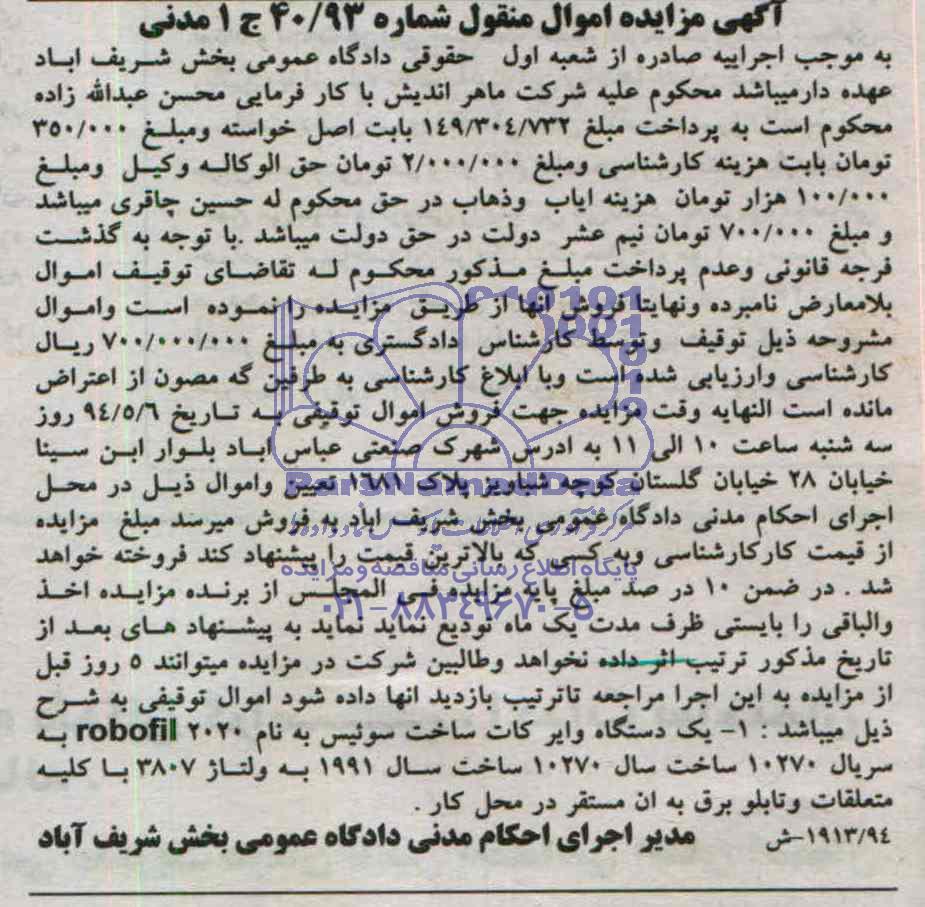 آگهی مزایده اموال منقول شماره ۴۰/۹۳ ج ۱ مدنی
به موجب اجراییه صادره از شعبه اول حقوقی دادگاه عمومی بخش شریف اباد
عهده دارمیباشد محکوم علیه شرکت ماهر اندیش با کار فرمایی محسن عبدالله زاده
محکوم است به پرداخت مبلغ ۱۴۹/۳۰۴/۷۳۲ بابت اصل خواسته ومبلغ ۳۵۰/۰۰۰
تومان بابت هزینه کارشناسی ومبلغ ۲/۰۰۰/۰۰۰ تومان حق الوکاله وکیل ومبلغ
۱۰۰/۰۰۰ هزار تومان هزینه ایاب وذهاب در حق محکوم له حسین چاقری میباشد
و مبلغ ۷۰۰/۰۰۰ تومان نیم عشر دولت در حق دولت میباشد .با توجه به گذشت
فرجه قانونی وعدم پرداخت مبلغ مذکور محکوم له تقاضای توقیف اموال
بلامعارض نامبرده ونهایتا فروش آنها از طریق مزایده را نموده است واموال
مشروحه ذیل توقیف وتوسط کارشناس دادگستری به مبلغ ۷۰۰/۰۰۰/۰۰۰ ریال
کارشناسی وارزیابی شده است وبا ابلاغ کارشناسی به طرفین گه مصون از اعتراض
مانده است النهایه وقت مزایده جهت فروش اموال توقیفی به تاریخ ۹۴/۵/۶ روز
سه شنبه ساعت ۱۰ الی ۱۱ به ادرس شهرک صنعتی عباس اباد بلوار ابن سینا
خیابان ۲۸ خیابان گلستان کوچه شباویز پلاک ۱۶۸۱ تعیین واموال ذیل در محل
اجرای احکام مدنی دادگاه عمومی بخش شریف اباد به فروش میرسد مبلغ مزایده
از قیمت کارکارشناسی وبه کسی که بالاترین قیمت را پیشنهاد کند فروخته خواهد
شد . در ضمن ۱۰ در صد مبلغ پایه مزایده فی المجلس از برنده مزایده اخذ
والباقی را بایستی ظرف مدت یک ماه تودیع نماید نماید به پیشنهاد های بعد از
تاریخ مذکور ترتیب اثر داده نخواهد وطالبین شرکت در مزایده میتوانند ۵ روز قبل
از مزایده به این اجرا مراجعه تاترتیب بازدید انها داده شود اموال توقیفی به شرح
ذیل میباشد : ۱- یک دستگاه وایر کات ساخت سوئیس به نام robofil ۲۰۲۰ به
سریال ۱۰۲۷۰ ساخت سال ۱۰۲۷۰ ساخت سال ۱۹۹۱ به ولتاژ ۳۸۰۷ با کلیه
متعلقات وتابلو برق به ان مستقر در محل کار .
۱۹۱۳/۹٤-ش مدیر اجرای احکام مدنی دادگاه عمومی بخش شریف آباد
ParsNamadData
پایگاه اطلاع رسانی مناقصه و مزایده
۰۲۱-۸۸۳۴۹۶۷۰-۵